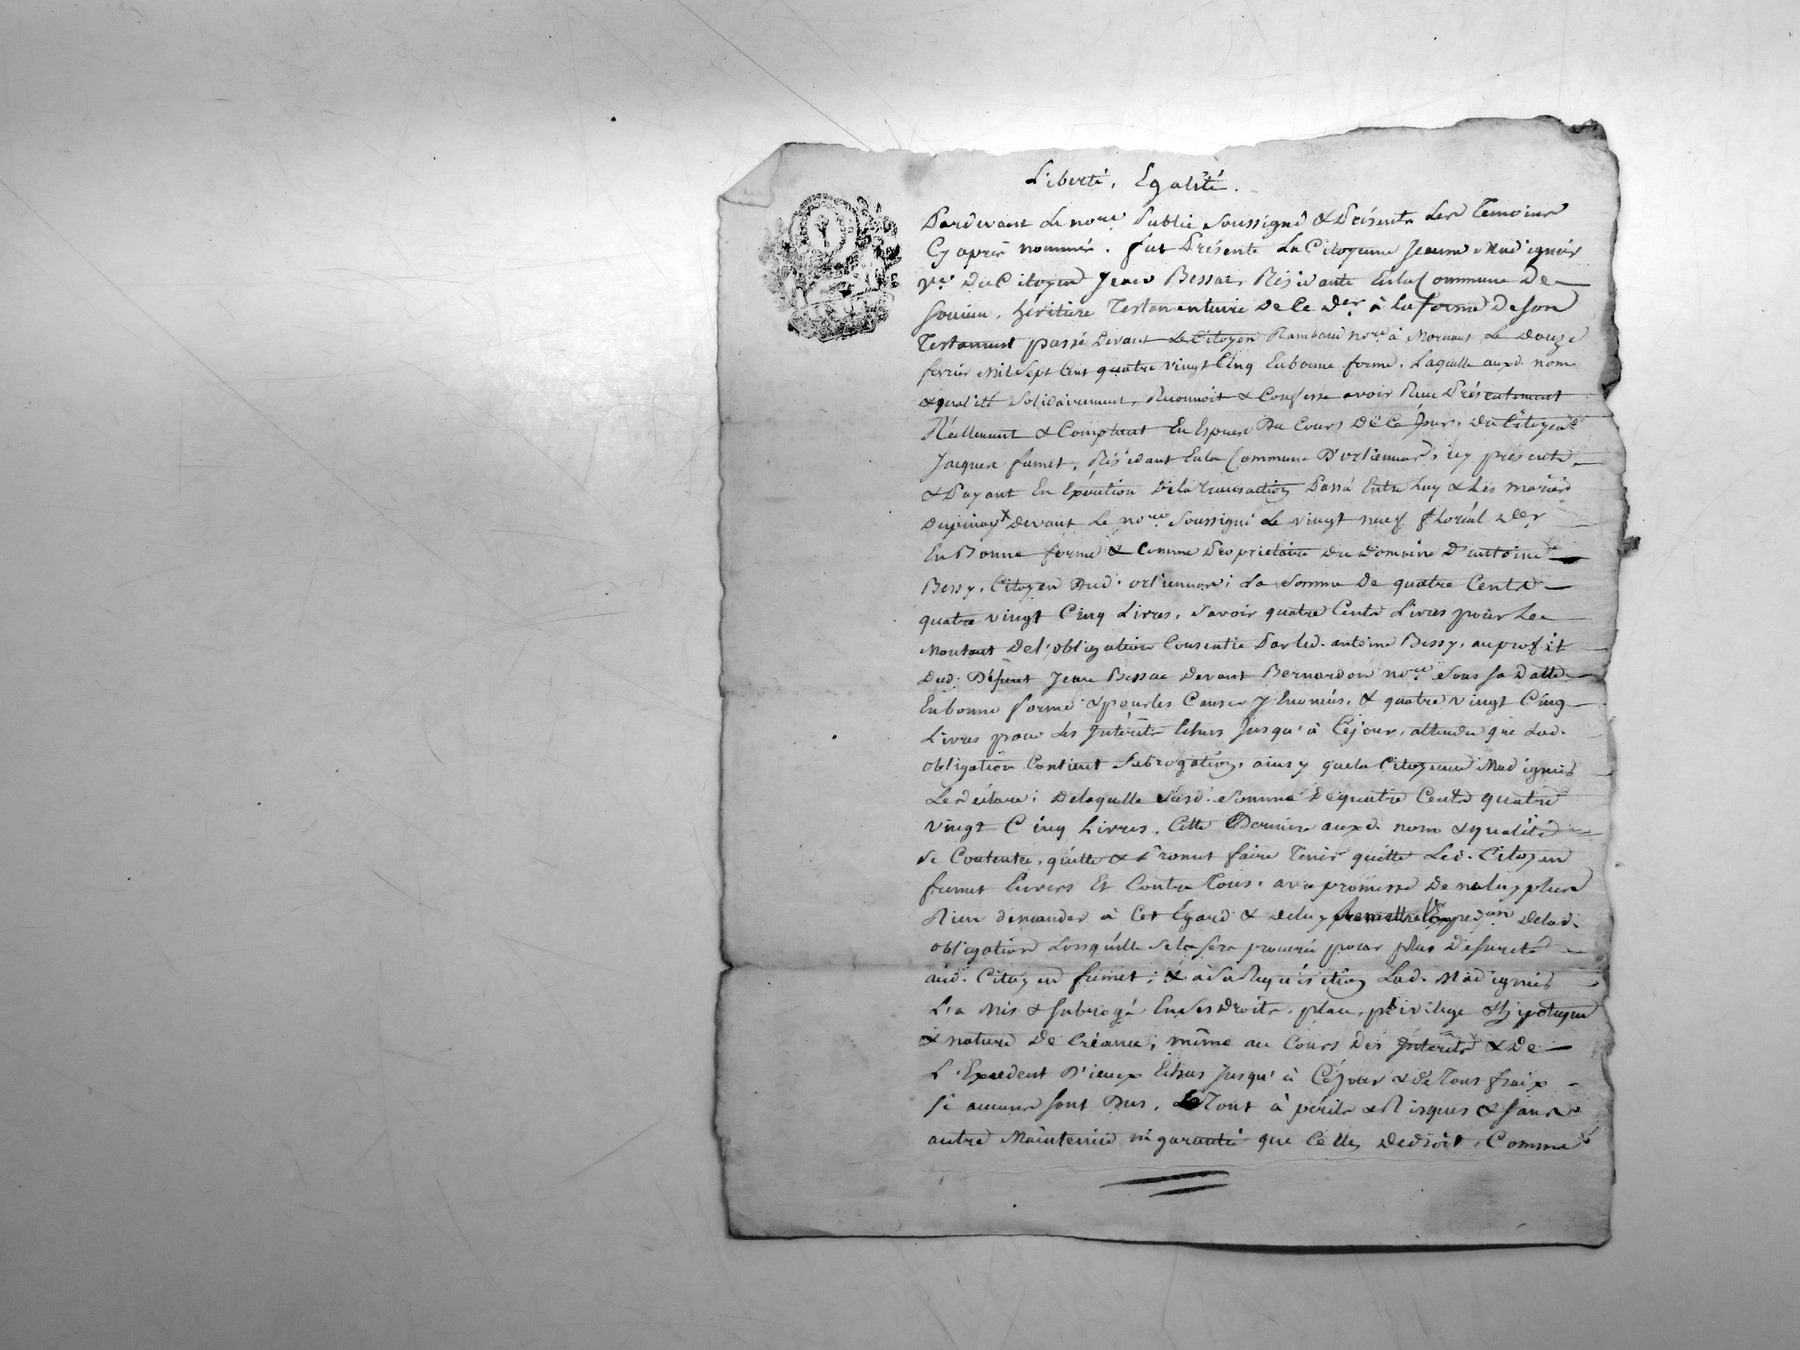 Liberté, Egalité.
Pardevant Le no.re Public Soussigné & Présents Les Temoins
Cy après nommés. fut Présente La Citoyenne Jeanne Madignier
v.e Du Citoyen Jean Bessac, Résidante En la Commune De
heritiere Testamentaire De Ce D.er à la forme De son
Testament passé Devant Le Citoyen Rambaud no.re à Mornant Le Douze
fevrier Mil Sept Cent quatre vingt Cinq En bonne forme. Laquelle aux d. nom
& qualité Solidairement, Reconnoit & Confesse avoir Reçu Présentement
Réellement & Comptant En Especes Du Cours De Ce Jour, Du Citoyen
Jacques fumet, Résidant En la Commune D'orliennas, icy présent
& Payant En Exécution De la transaction Passé Entre Luy & Les mariés
Devant Le no.re Soussigné Le vingt neuf floréal
En Bonne forme & Comme Propriétaire Du Domaine D'antoine
Bessy, Citoyen Dud. orliennas; La Somme De quatre Cents
quatre vingt Cinq Livres, Savoir quatre Cents Livres pour Le
Montant De l'obligation Consentie Par led. antoine Bessy, au profit
Dud. Défunt Jean Bessac Devant Bernardon no.re Sous Sa Datte
En bonne forme & pour les Causes y Enoncées, & quatre vingt Cinq
Livres pour Les Intérêts Echus Jusqu'à Cejour, attendu que Lad.
obligation Contient Subrogation, ainsy que la Citoyenne Madignier
Le déclare; De laquelle Susd. Somme De quatre Cents quatre
vingt Cinq Livres, Cette Derniere aux d. nom & qualité
Se Contente, quitte & Promet faire Tenir quitte Led. Citoyen
fumet Envers Et Contre Tous, avec promesse De ne luy plus
Rien demander à Cet Egard & De luy Remettre Exped.on De lad.
obligation Lorsqu'elle Se la Sera procurée pour plus De Sureté
aud. Citoyen fumet; & à Sa Réquisition Lad. Madignier
L'a Mis & Subrogé En Ses Droits, place, privilege & hipoteque
& nature De Créance, même au Cours Des Intérêts & De
L'Excedent D'iceux Echus Jusqu'à Cejour & De Tous fraix
Si aucuns Sont Dus, Le Tout à périls & Risques & Sans
autre Maintenue ni garantie que Celle De droit, Comme